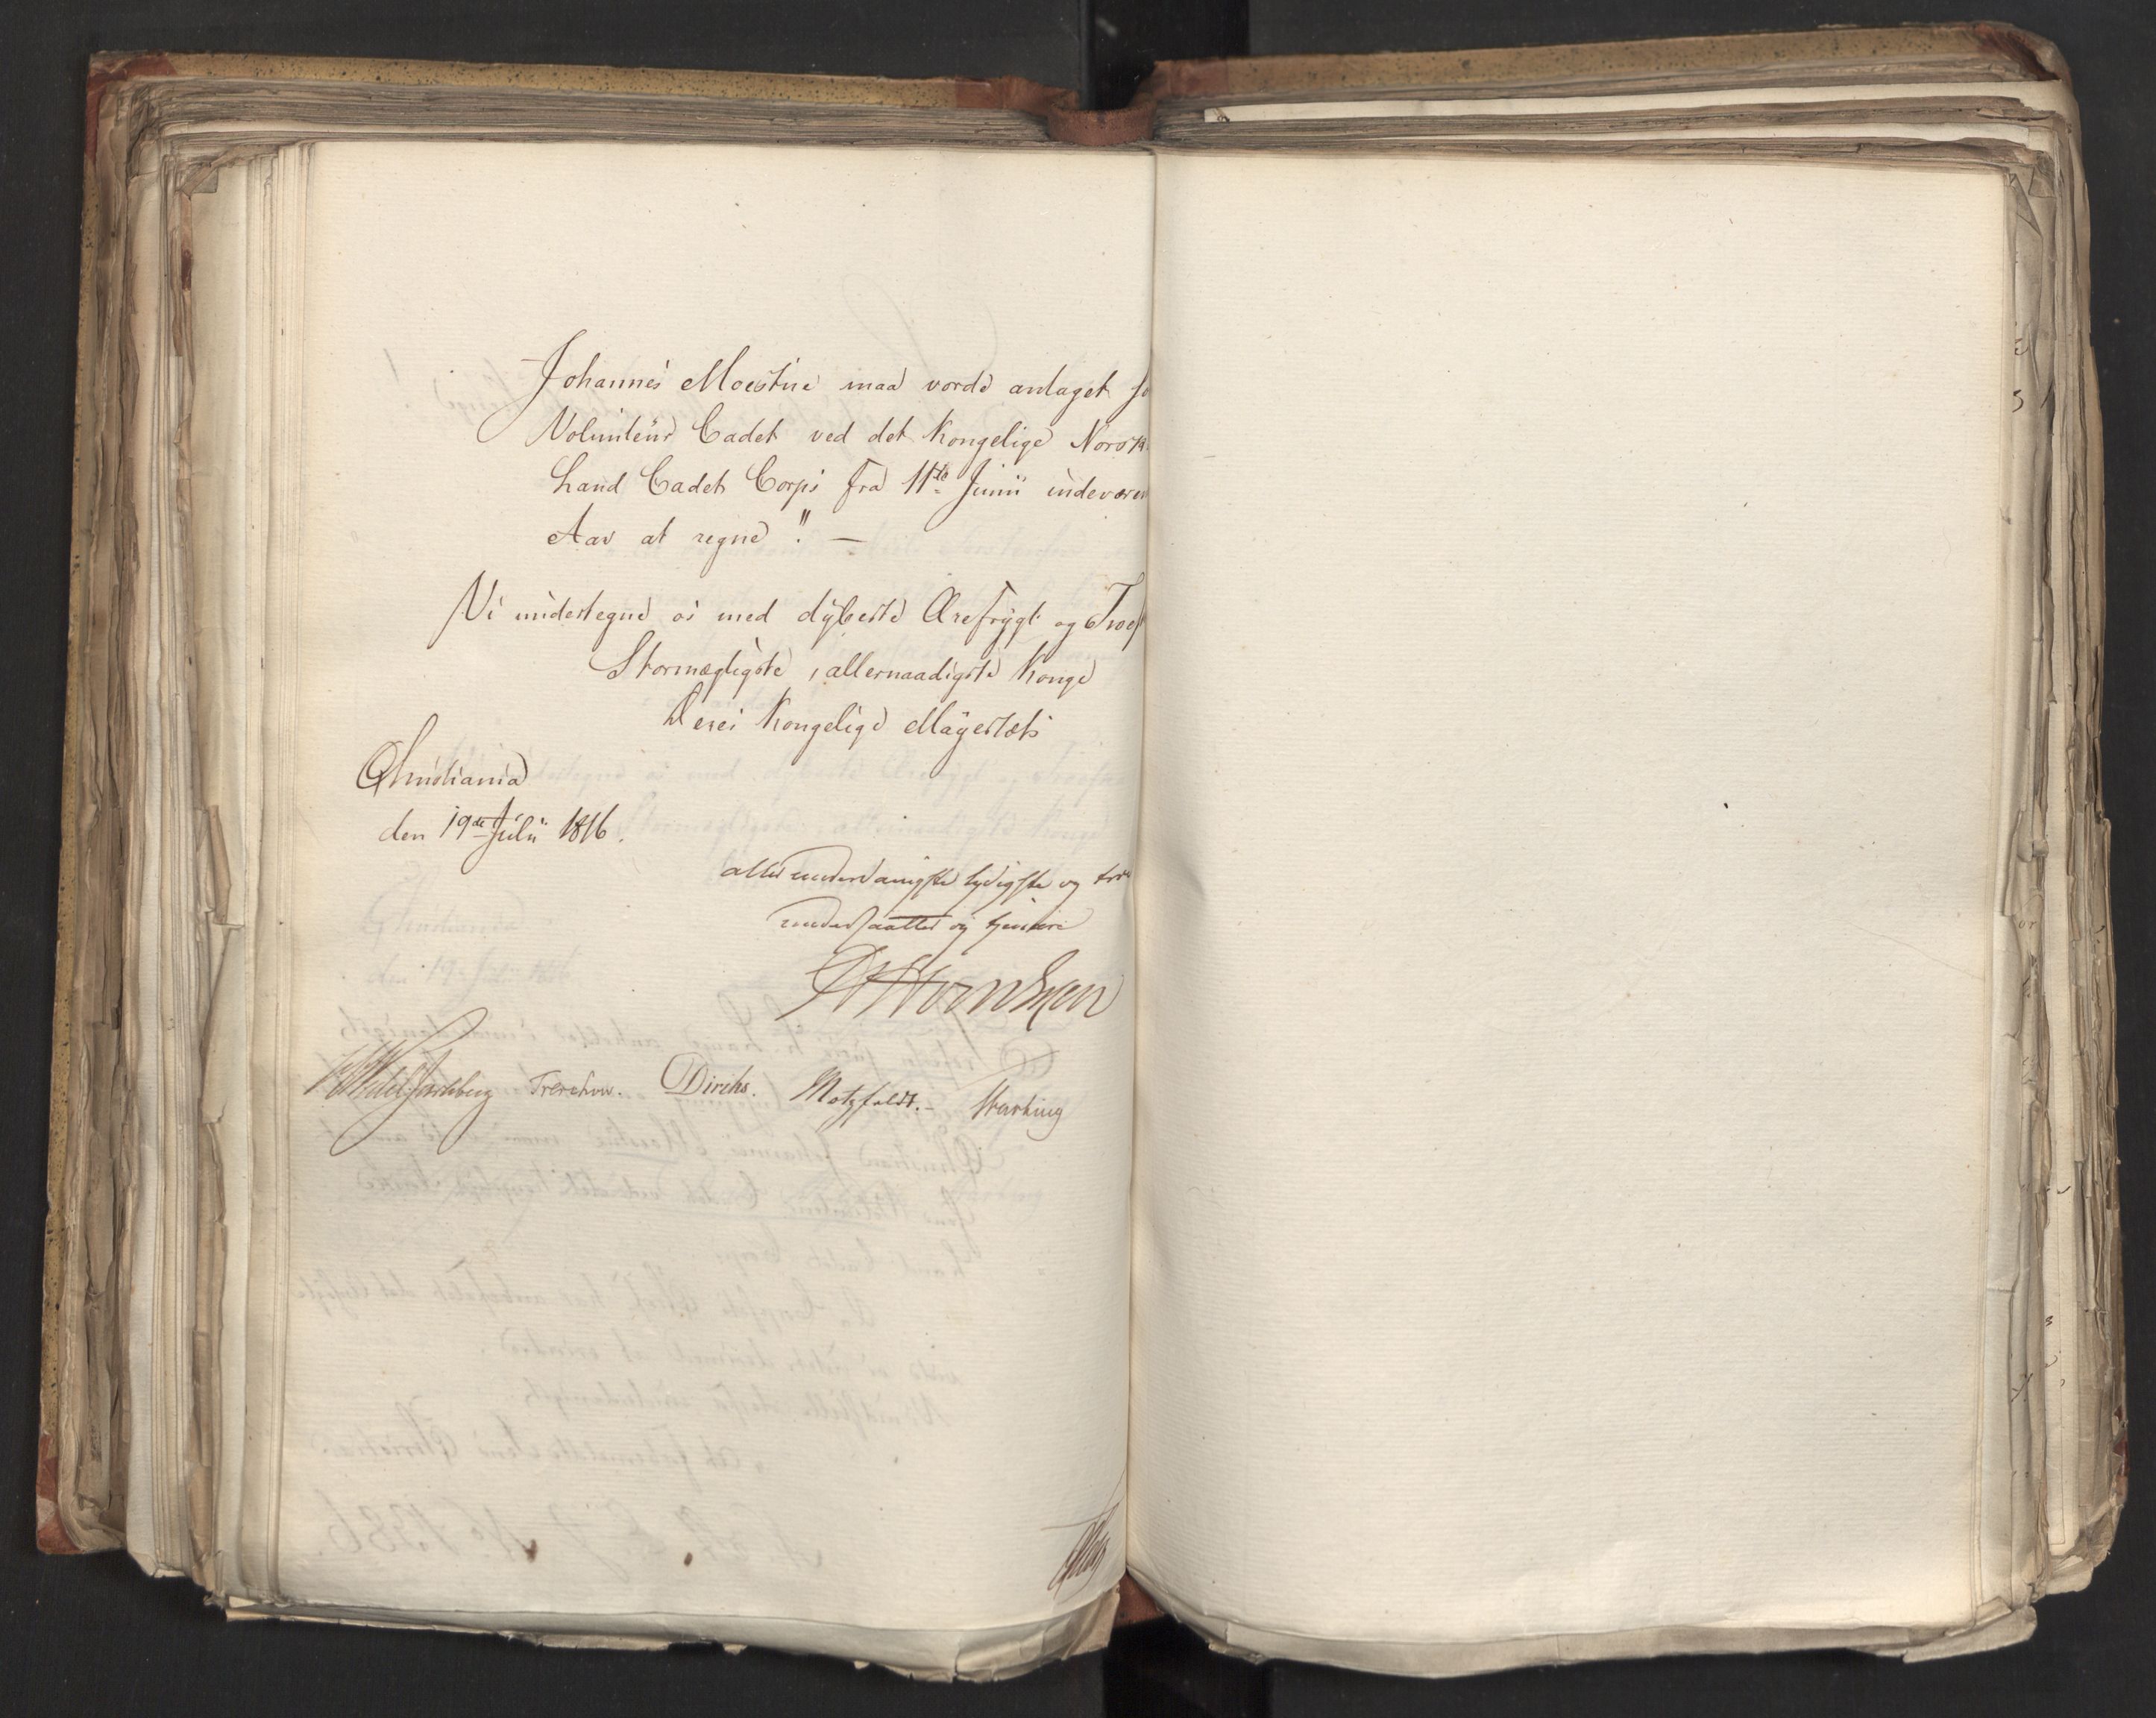 Johannes Moestue maa vorde antaget so
Volunteur Cadet ved det Kongelige Norsk
Land Cadet Corps fra 11te Junii indeværen
Aar at regne". —
Vi undertegne os med dybeste Ærefrygt og Troes
Stormægtigste, allernaadigste Konge
Deres Kongelige Mayestæts
Christiania
den 19de Julii 1816.
allerunderdanigste lydigste og tro
undersaatter og tjenere
Wedel Jarlsberg Treschow. Diriks. Motzfeldt.-